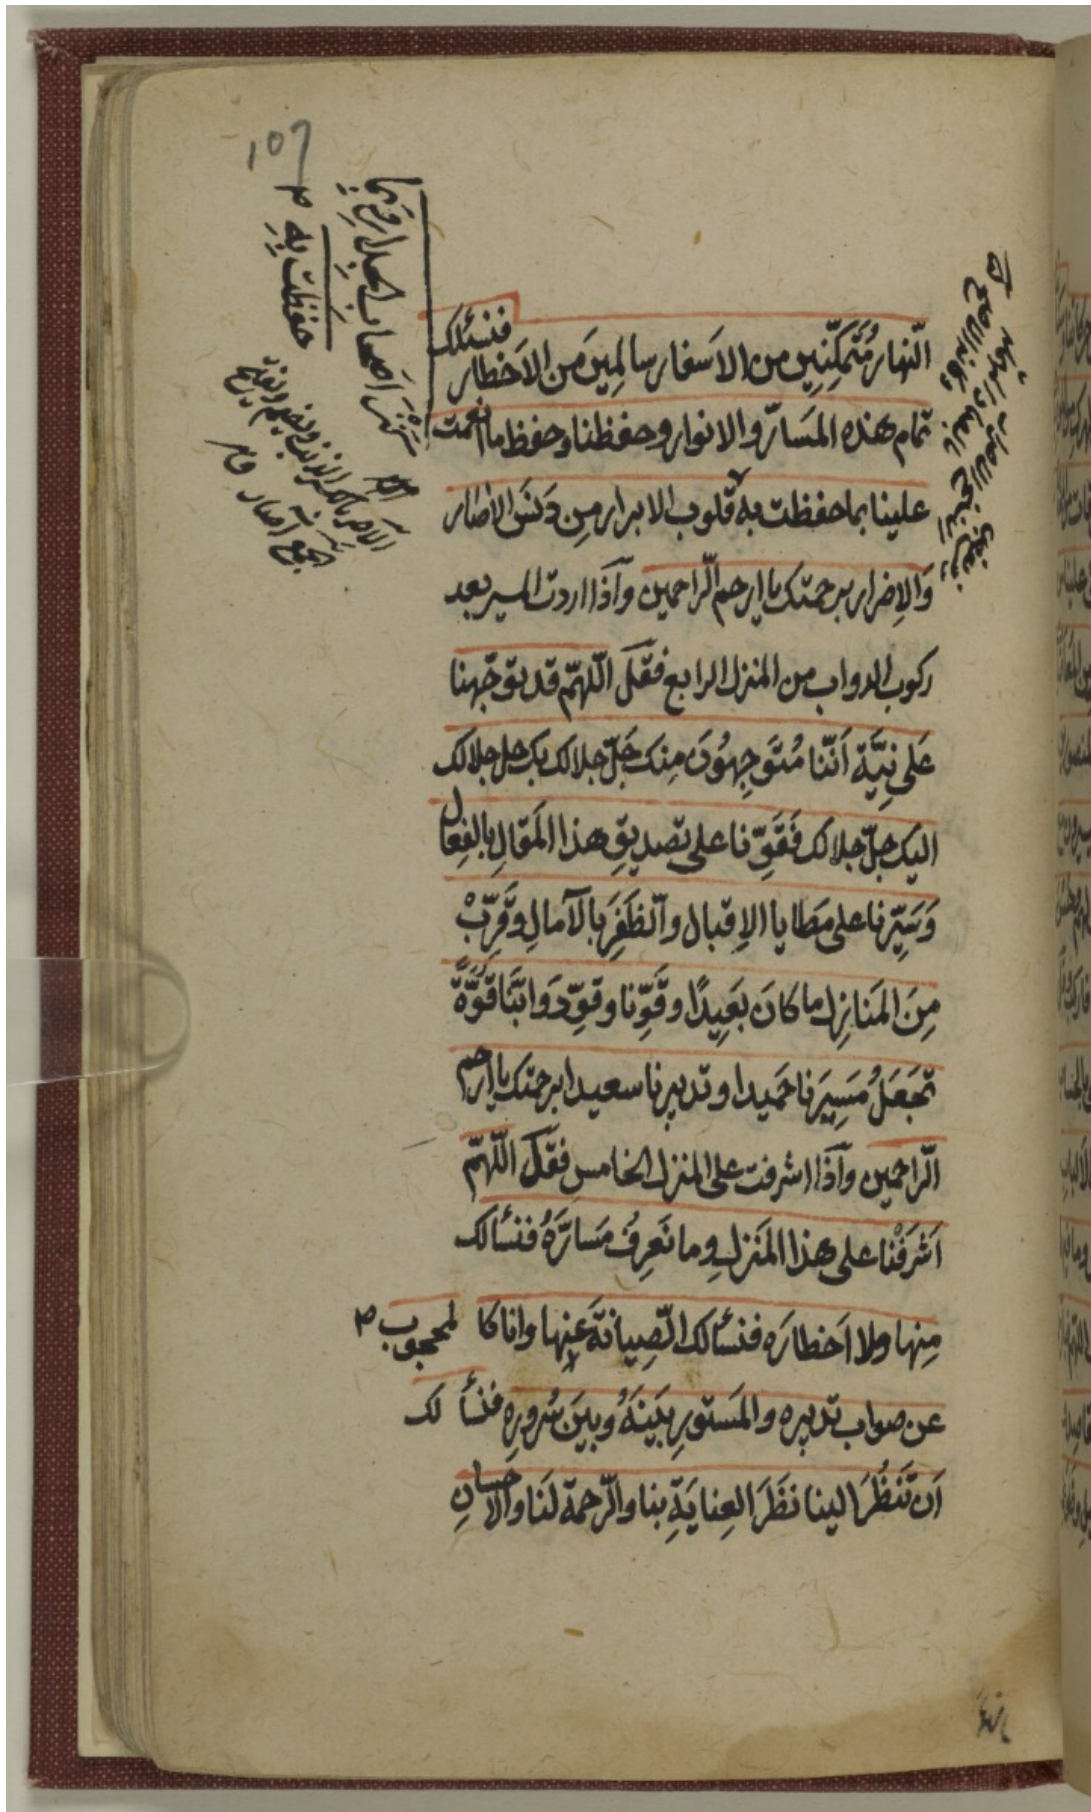 النهار مُتَمَكِّنِين من الاَسفار سالِمِينَ مِن الاَخطار فنسئلك
تمام هذه المَسَارّ والانوار وحفظنا وحفظ ما انعمت
علينا بما حفظت به قلوب الابرار مِن دَنَسَ الاٰصار
وَالاِضرار برحمتك يا ارحم الرّاحمين وآذا اردت المسير بعد
ركوب الدواب من المنزل الرابع فقل اللّهمّ قد توجّهنا
عَلى نِيَّة اَنّنا مُتَوَجِهُونَ مِنك جَلّ جلالك بك جل جلالك
اليك جلّ جلالك فَقَوِّنا على تصديقِ هذا المَقالِ بالفِعالِ
وَسَيِّرنا على مَطايا الاِقبال والظَفَرِ بالآمالِ وَقَرِّبْ
مِنَ المَنازِل ما كان بَعِيدًا وقَوِّنا وقوِّ دَوابَّنا قُوَّةً
تَجعَلُ مَسِيرَنا حَميدا وتدبيرنا سعيدا برحمتك يا ارحم
الرّاحمين وآذا اشرفت على المنزل الخامس فقل اللّهمّ
اَشرَفْنا على هذا المَنزِلِ وما نَعرِفُ مَسارَّهُ فنسألك
مِنها ولا اَخطارَه فنسألك الصِيانَةَ عَنها وانا كا لمحجوب
عن صواب تدبيره والمَستورِ بَينَهُ وبينَ سُرورِه فنسألك
اَن تَنظُرَ الينا نَظَرَ العِنايَةِ بنا والرّحمة لَنا والاِحسانِ
حفظت بِهِ